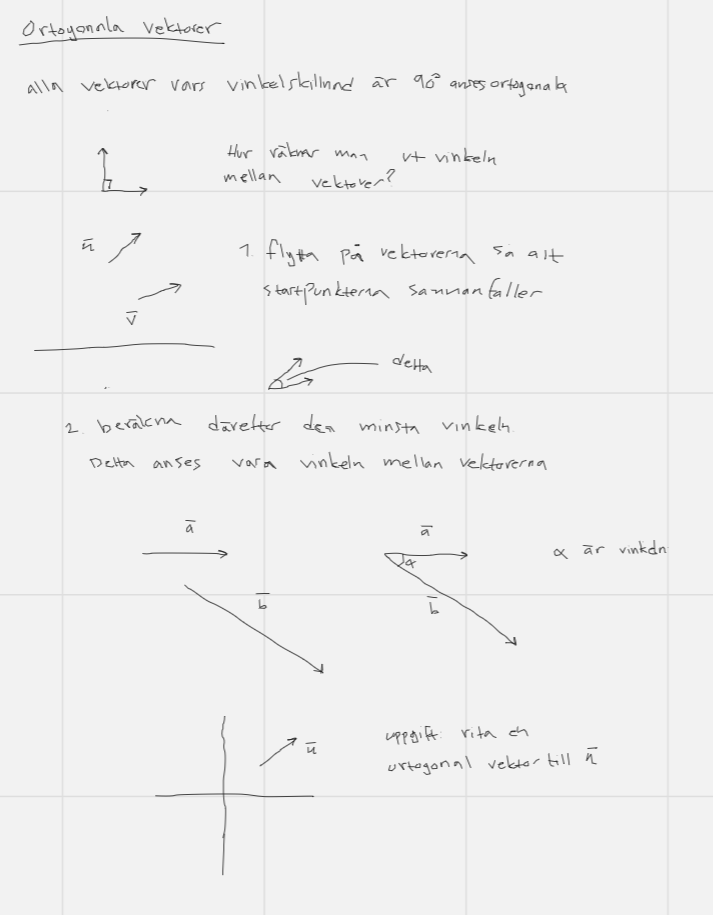 Ortogonala vektorer
alla vektorer vars vinkelskillnad är 90° anses ortogonala
Hur räknar man ut vinkeln
mellan vektorer?
ū
1. flytta på vektorerna så att
startpunkterna sammanfaller
v̄
detta
2. beräkna därefter den minsta vinkeln.
Detta anses vara vinkeln mellan vektorerna
ā
ā
α är vinkeln
α
b̄
b̄
ū
uppgift: rita en
ortogonal vektor till ū